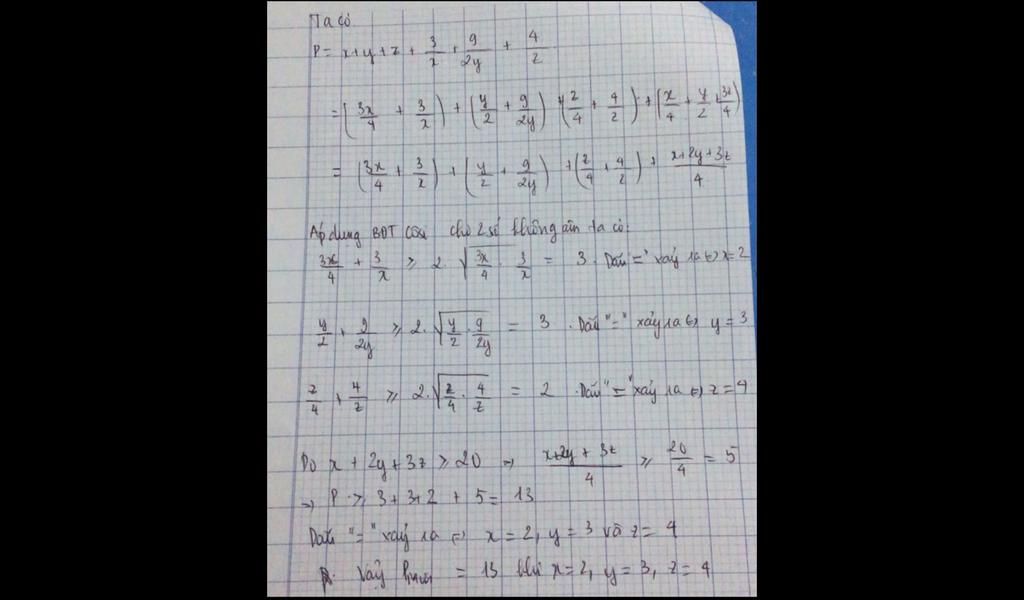 Ta có
P = x+y+z + 3/x + 9/2y + 4/z
= (3x/4 + 3/x) + (y/2 + 9/2y) + (z/4 + 4/z) + (x/4 + y/2 + 3z/4)
= (3x/4 + 3/x) + (y/2 + 9/2y) + (z/4 + 4/z) + x+2y+3z/4
Áp dụng BĐT Côsi cho 2 số không âm ta có:
3x/4 + 3/x ≥ 2.√(3x/4 . 3/x) = 3. Dấu "=" xảy ra ⇔ x=2
y/2 + 9/2y ≥ 2.√(y/2 . 9/2y) = 3. Dấu "=" xảy ra ⇔ y = 3
z/4 + 4/z ≥ 2.√(z/4 . 4/z) = 2. Dấu "=" xảy ra ⇔ z = 4
Do x + 2y + 3z ≥ 20 ⇒ x+2y+3z/4 ≥ 20/4 = 5
⇒ P ≥ 3+3+2 + 5 = 13
Dấu "=" xảy ra ⇔ x = 2, y = 3 và z = 4
Vậy Pmin = 13 khi x=2, y=3, z=4